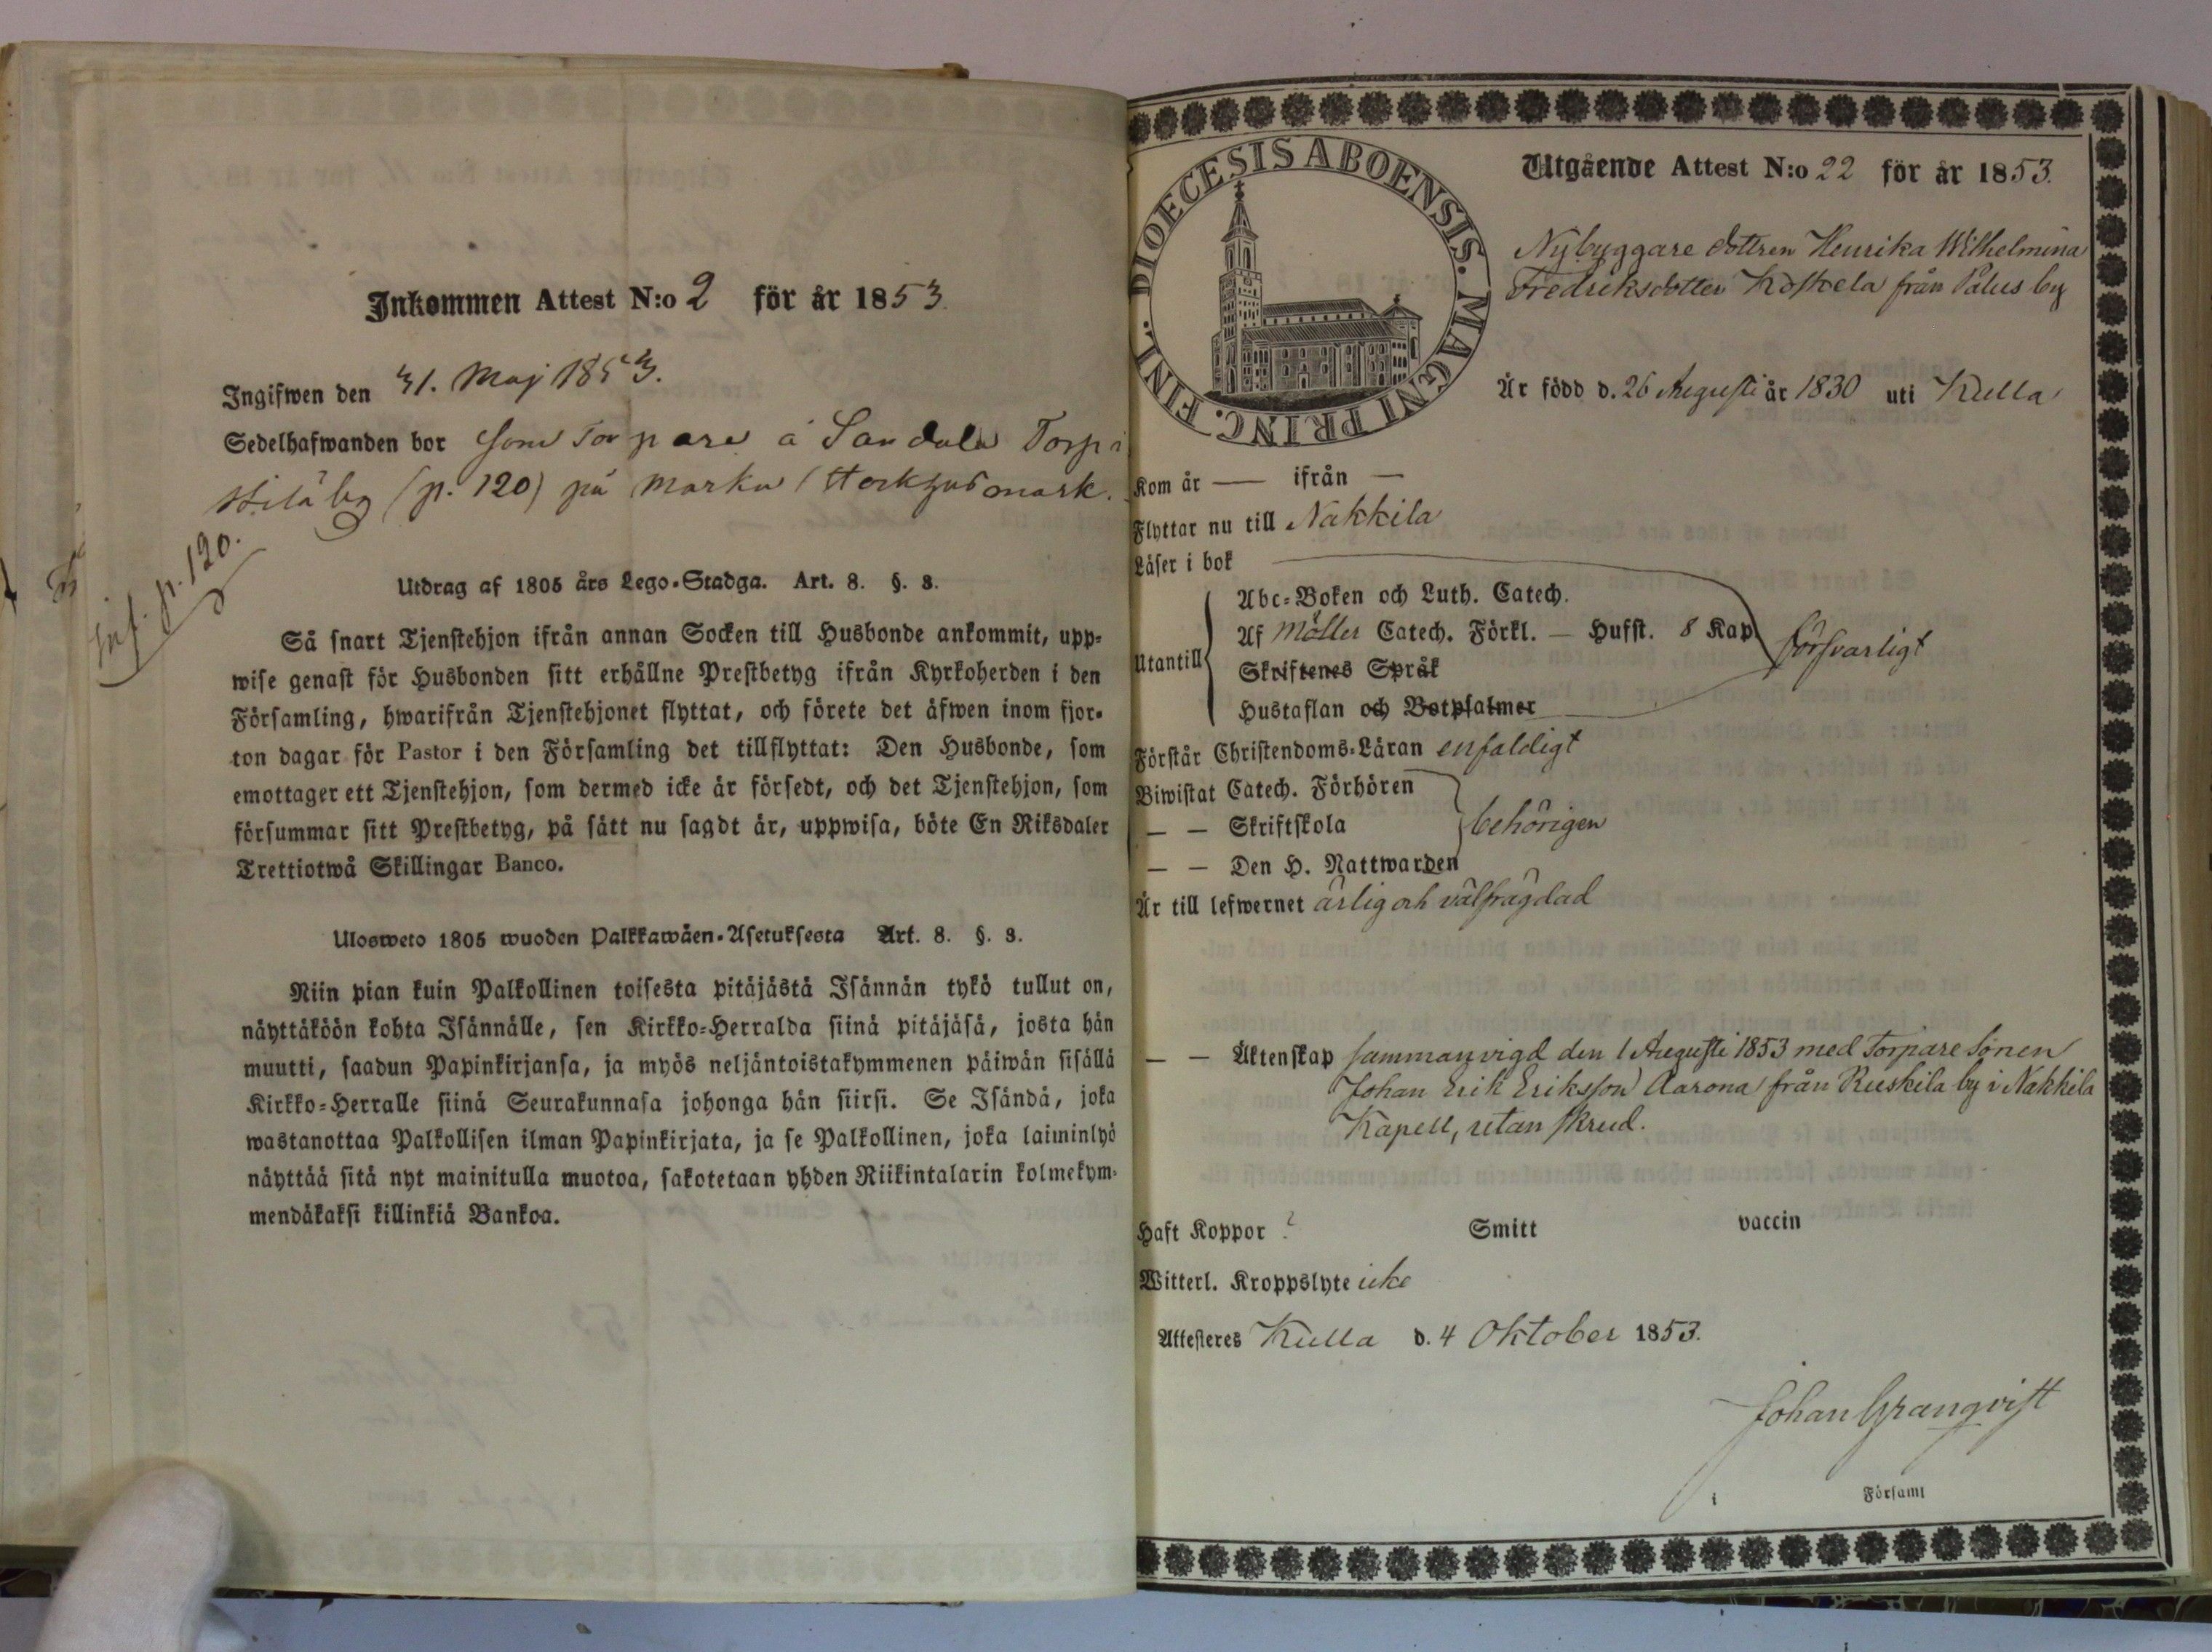 Inkommen Attest N:o 2 för år 1853.
Ingifwen den 31. Maj 1853.
Sedelhafwanden bor som Torpare å Sandula Torp i
by (p. 120) på marku mark.
Inf. p. 120.
Utdrag af 1805 års Lego-Stadga. Art. 8. §. 3.
Så snart Tjenstehjon ifrån annan Socken till Husbonde ankommit, upp-
wise genast för Husbonden sitt erhållne Prestbetyg ifrån Kyrkoherden i den
Församling, hwarifrån Tjenstehjonet flyttat, och förete det äfwen inom fjor-
ton dagar för Pastor i den Församling det tillflyttat: Den Husbonde, som
emottager ett Tjenstehjon, som dermed icke är försedt, och det Tjenstehjon, som
försummar sitt Prestbetyg, på sätt nu sagdt är, uppwisa, böte En Riksdaler
Trettiotwå Skillingar Banco.
Ulosweto 1805 wuoden Palkkawäen-Asetuksesta Art. 8. §. 3.
Niin pian kuin Palkollinen toisesta pitäjästä Isännän tykö tullut on,
näyttäköön kohta Isännälle, sen Kirkko-Herralda siinä pitäjäsä, josta hän
muutti, saadun Papinkirjansa, ja myös neljäntoistakymmenen päiwän sisällä
Kirkko-Herralle siinä Seurakunnasa johonga hän siirsi. Se Isändä, joka
wastanottaa Palkollisen ilman Papinkirjata, ja se Palkollinen, joka laiminlyö
näyttää sitä nyt mainitulla muotoa, sakotetaan yhden Riikintalarin kolmekym-
mendäkaksi killinkiä Bankoa.
DIOECESIS ABOENSIS. MAGNI PRINC. FINL.
Utgående Attest N:o 22 för år 1853.
Nybyggare dottren Henrika Wilhelmina
Fredriksdotter Koskela från Palus by
Är född d. 26 Augusti år 1830 uti Kulla
Kom år — ifrån —
Flyttar nu till Nakkila
Läser i bok
Abc-Boken och Luth. Catech.
Af Möller Catech. Förkl. — Husst. 8 Kap.
Utantill
försvarligt
Skriftenes Språk
Hustaflan och Botpsalmer
Förstår Christendoms-Läran enfaldigt
Biwistat Catech. Förhören
— — Skriftskola
behörigen
— — Den H. Nattwarden
Är till lefwernet ärlig och välfrägdad
— — Äktenskap sammanvigd den 1 Augusti 1853 med Torpare Sonen
Johan Erik Eriksson Aarona från Ruskila by i Nakkila
Kapell, utan skrud.
Haft Koppor ? Smitt vaccin
Witterl. Kroppslyte icke
Attesteres Kulla d. 4 Oktober 1853.
Johan Granqvist
i Församl